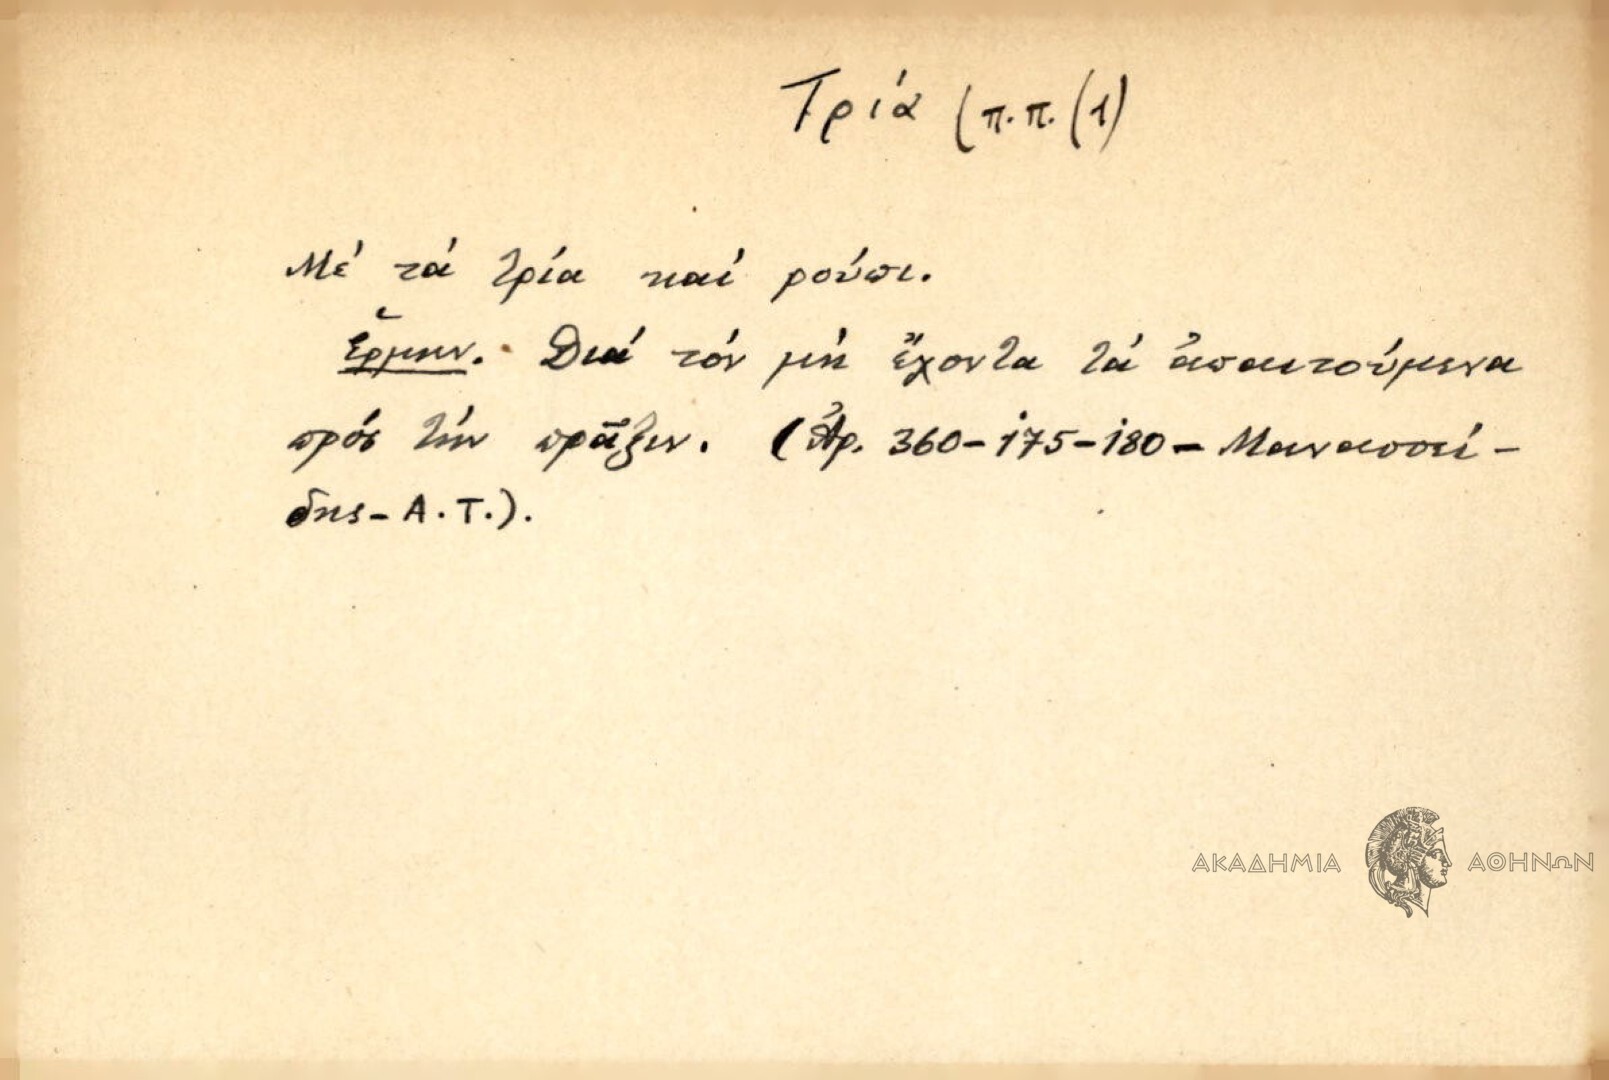 Τρία (π.π. (1)
Μέ τά τρία καί ρούπι.
Ἑρμην. Διά τόν μή ἔχοντα τά ἀπαιτούμενα
πρός τήν πρᾶξιν. (Ἀρ. 360-175-180-Μαναssεί-
δης-Α.Τ.).
ΑΚΑΔΗΜΙΑ ΑΘΗΝΩΝ